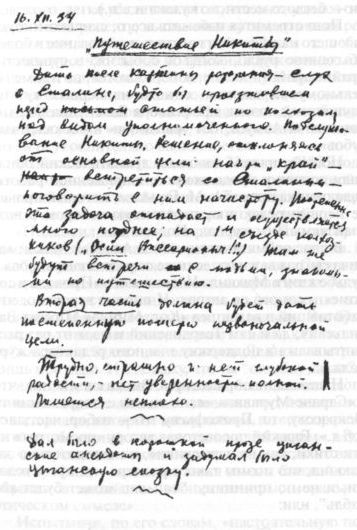 16.XII.34
„Путешествие Никиты"
Дать после картины Слух
о Сталине, будто бы проезжавшем
перед статьей по колхозам
под видом уполномоченного.
Никиты. Решение, отклоняясь
от основной цели найти „край"
встретиться со Сталиным —
поговорить с ним начистоту. Постепенно
эта задача отпадает и осуществляется
много позднее, на 1м съезде колхоз-
ников Там же
будут встречи с людьми, знакомы-
ми по путешествию.
Вторая часть должна будет дать
постепенную потерю первоначальной
цели.
Трудно, страшно и нет глубокой
радости, нет уверенности полной.
Пишется неплохо.
в хорошей прозе цыган-
ские анекдоты и задумал
цыганскую